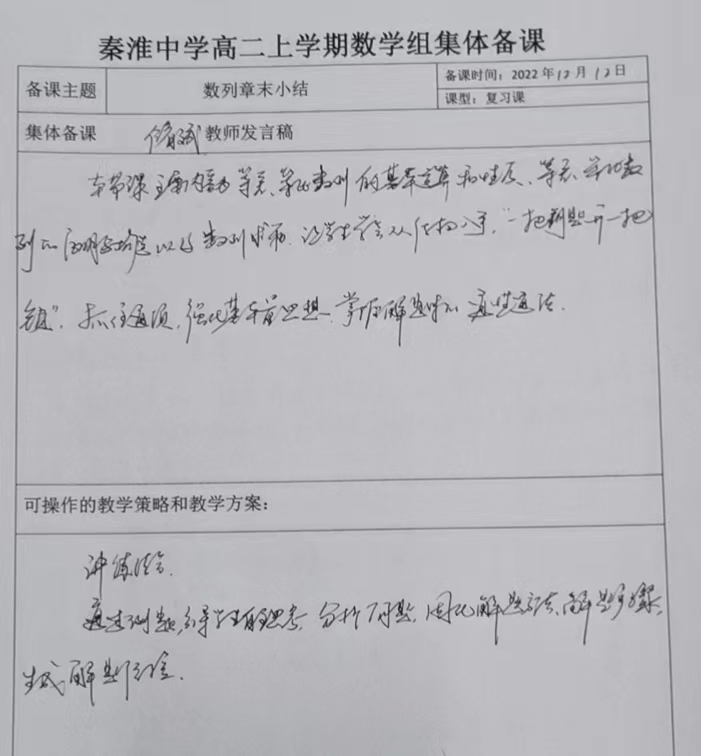 秦淮中学高二上学期数学组集体备课
备课主题 数列章末小结 备课时间：2022年12月12日
课型：复习课
集体备课 教师发言稿
本节课主要内容为等差、等比数列的基本运算和性质、等差、等比数
列的证明 以及数列求和. 让学生学会从 "一把钥匙开一把
锁". 抓住通项, 强化基本量思想, 掌握解题的通性通法.
可操作的教学策略和教学方案：
讲练结合.
通过例题, 引导学生自主思考, 分析问题, 归纳解题方法、解题步骤,
生成解题经验.